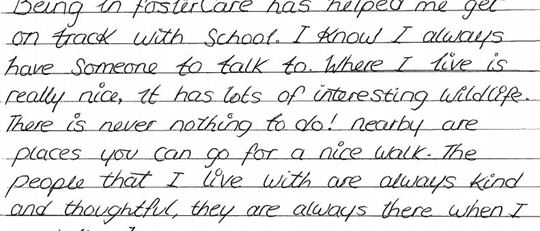 Being in fosterCare has helped me get
on track with School. I Know I always
have Someone to talk to. Where I live is
really nice, it has lots of interesting Wildlife.
There is never nothing to do! nearby are
places you can go for a nice walk. The
people that I live with are always kind
and thoughtful, they are always there when I